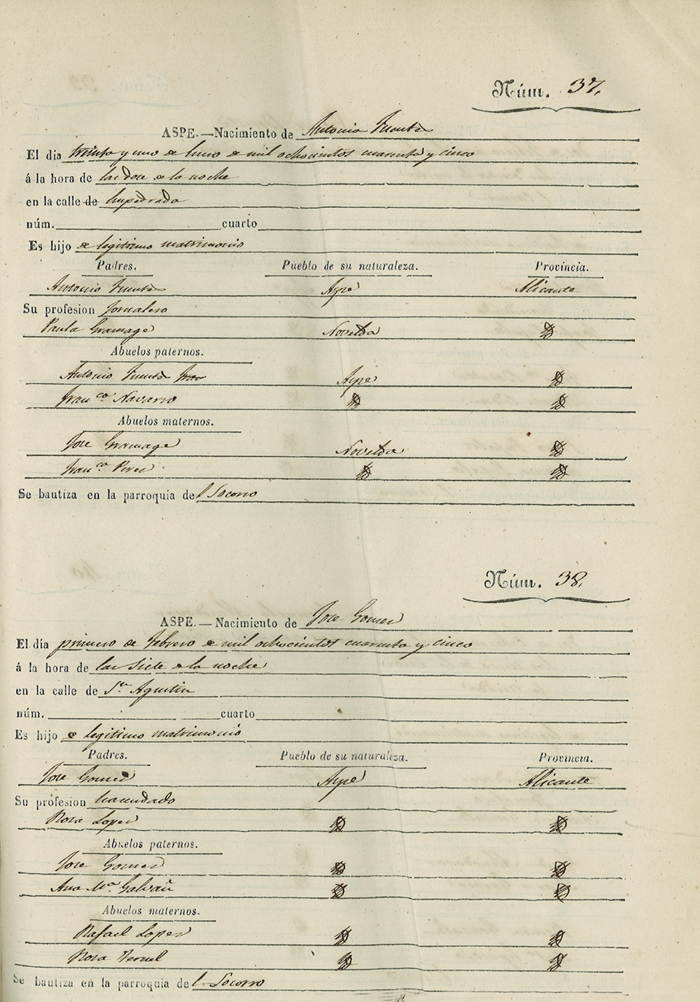 Núm. 37.
ASPE.—Nacimiento de Antonio
El dia treinta y uno de Enero de mil ochocientos cuarenta y cinco
á la hora de las doce de la noche
en la calle de Empedrada
núm. cuarto
Es hijo de legitimo matrimonio
Padres. Pueblo de su naturaleza. Provincia.
Antonio Aspe Alicante
Su profesion Jornalero
Paula Gramage Novelda
Abuelos paternos.
Antonio Aspe
Fran.ca Navarro
Abuelos maternos.
Jose Gramage Novelda
Fran.ca Perez
Se bautiza en la parroquia del Socorro
Núm. 38.
ASPE.—Nacimiento de Jose Gomez
El dia primero de Febrero de mil ochocientos cuarenta y cinco
á la hora de las siete de la noche
en la calle de Sn. Agustin
núm. cuarto
Es hijo de legitimo matrimonio
Padres. Pueblo de su naturaleza. Provincia.
Jose Gomez Aspe Alicante
Su profesion hacendado
Rosa Lopez
Abuelos paternos.
Jose Gomez
Ana Ma. Galvañ
Abuelos maternos.
Rafael Lopez
Rosa Teruel
Se bautiza en la parroquia del Socorro